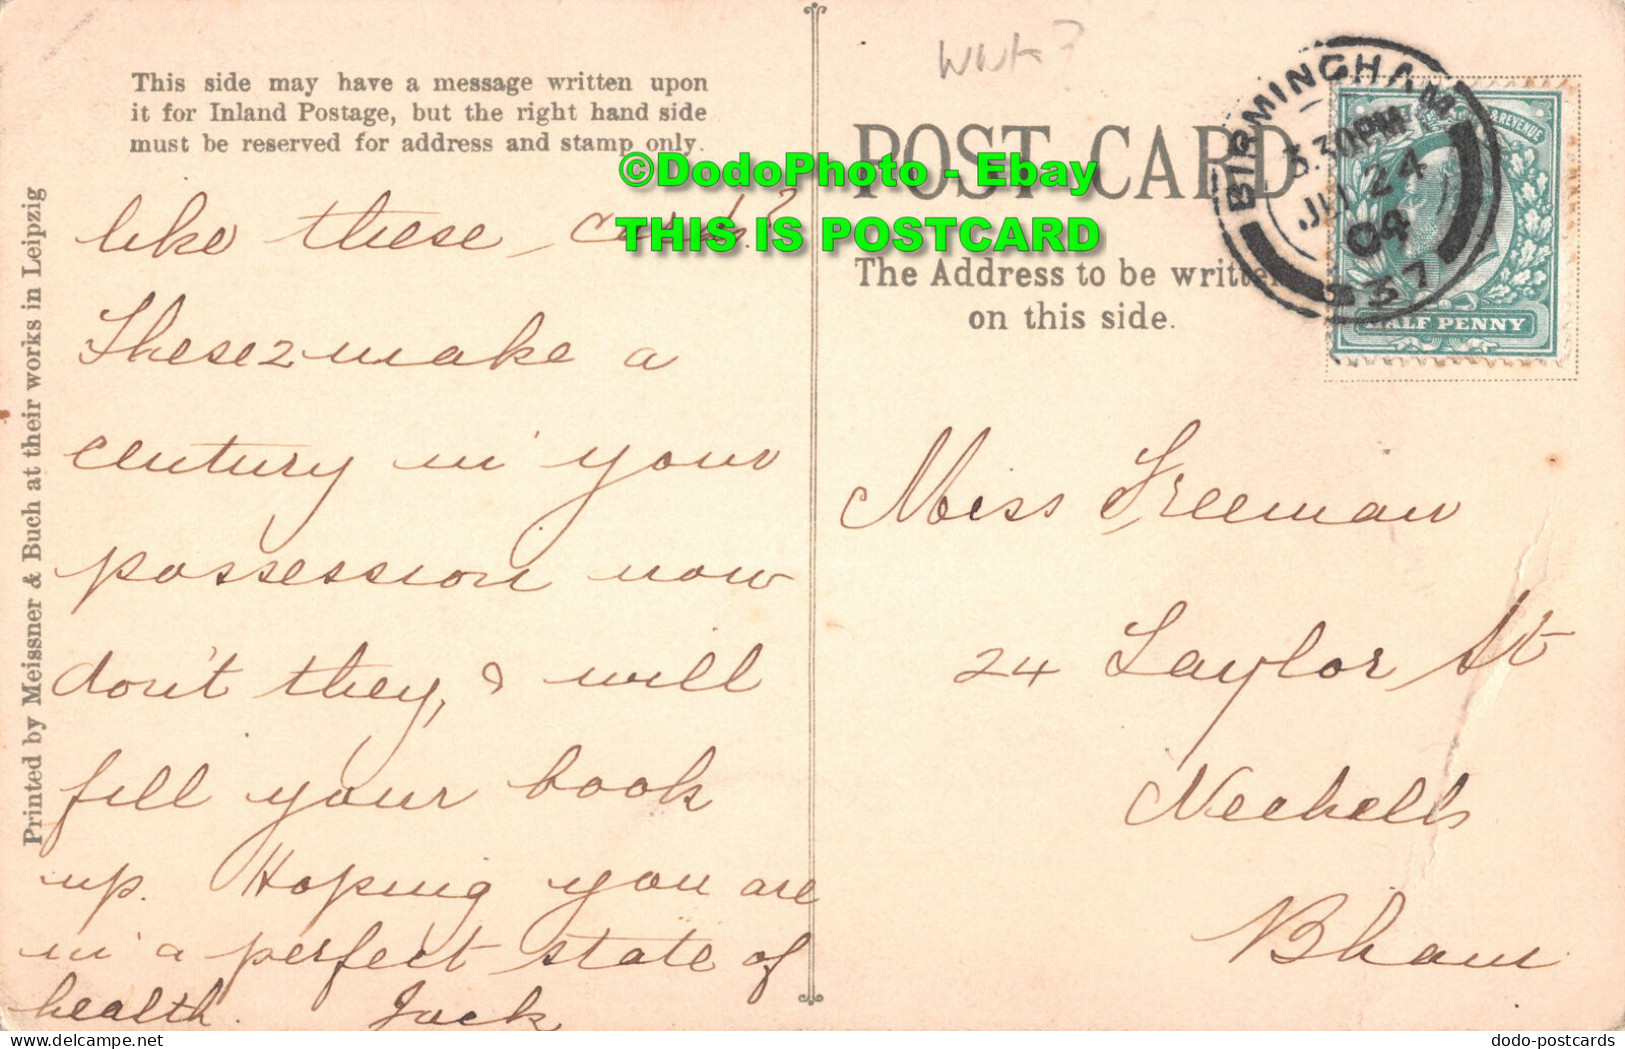 This side may have a message written upon
it for Inland Postage, but the right hand side
must be reserved for address and stamp only.
Printed by Meissner & Buch at their works in Leipzig
like these cards?
These 2 make a
century in your
possession now
don't they, & will
fill your book
up. Hoping you are
in a perfect state of
health. Jack
©DodoPhoto - Ebay
THIS IS POSTCARD
POST CARD
The Address to be written
on this side.
BIRMINGHAM
3.30PM
24
04
937
& REVENUE
HALF PENNY
Miss Freeman
24 Taylor St
Nechells
Bham
dodo-postcards